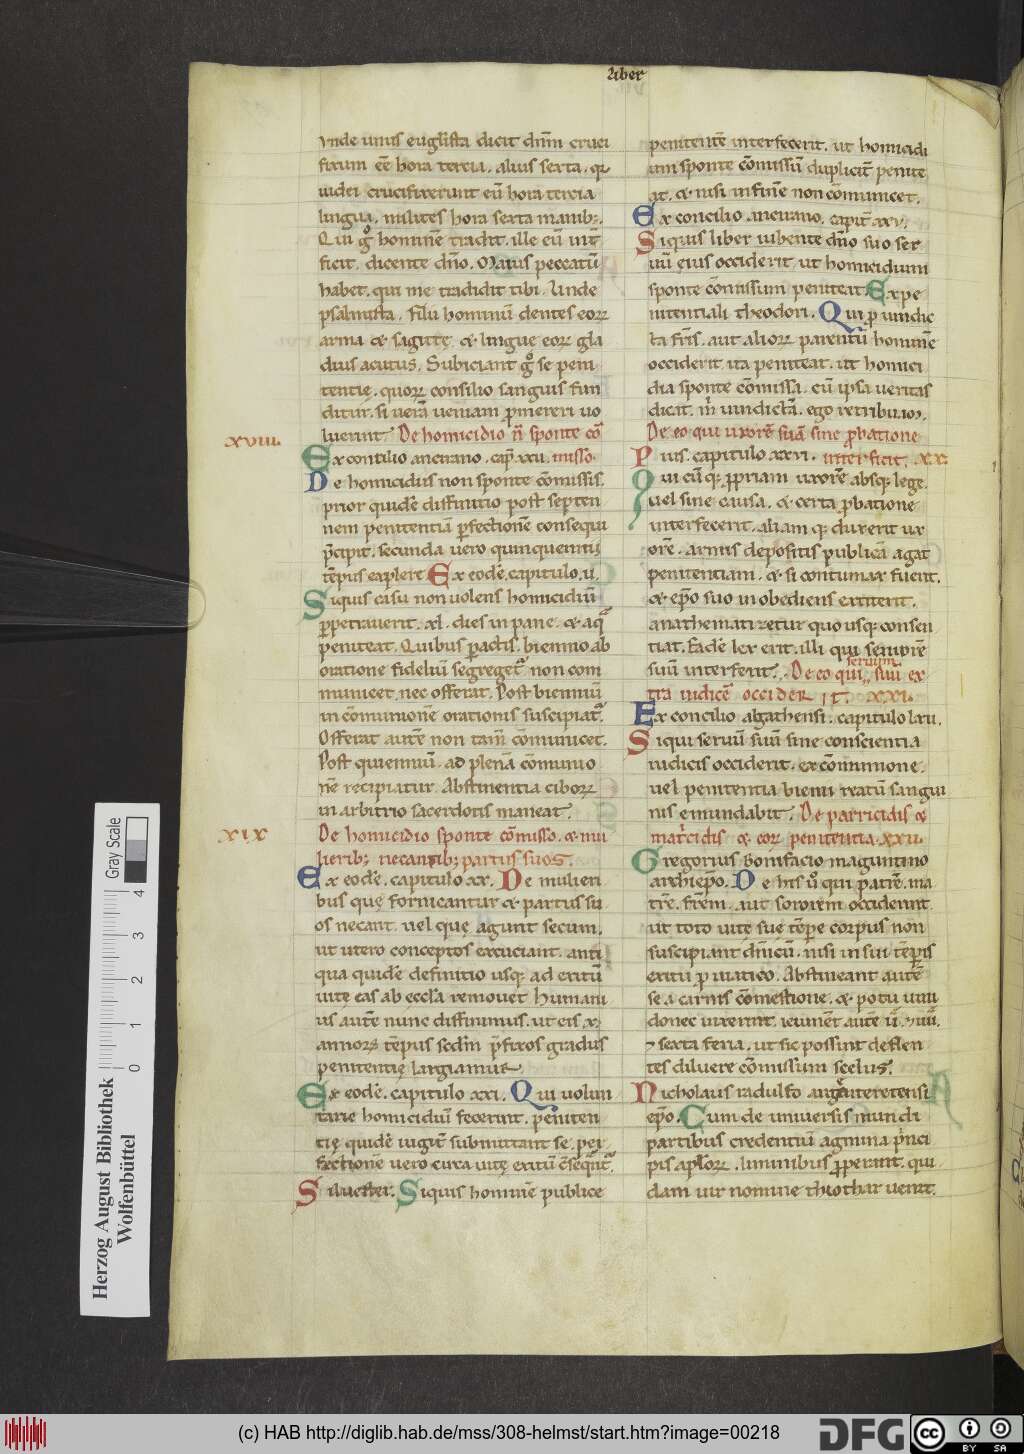 Liber
Vnde unus euglista dicit dnm cruci
fixum eē hora tercia. alius sexta. q̄
iudei crucifixerunt eū hora tercia
lingua. milites hora sexta manib;.
Qui g̊ hominē tradit. ille eū int̄
ficit. dicente dn̄o. Maius peccatū
habet. qui me tradidit tibi. Unde
psalmista. Filii hominū dentes eoꝝ
arma & sagittę. & linguę eoꝝ gla
dius acutus. Subiciant g̊ se peni
tentię. quoꝝ consilio sanguis fun
ditur. si uerā ueniam p̄mereri uo
luerint. De homicidio n̄ sponte cō
xviii.
Ex concilio ancirano. cap̄. xxii. misso.
De homicidiis non sponte cōmissis.
prior quidē diffinitio post septen
nem penitentiā p̄fectionē consequi
p̄cipit. secunda uero quinquennii
tēpus explere. Ex eodē. capitulo. u.
Siquis casu non uolens homicidiū
ꝑpetrauerit. xl. dies in pane. & aq̄
peniteat. Quibus ꝑactis. biennio ab
oratione fideliū segreget᷑. non com
municet. nec offerat. Post bienniū
in cōmunionē orationis suscipiat᷑.
Offerat autē non tam̄ cōmunicet.
Post quienniū. ad plenā cōmunio
nē recipiatur. Abstinentia ciboꝝ
in arbitrio sacerdotis maneat.
xix
De homicidio sponte cōmisso. & mu
lierib; necantib; partus suos.
Ex eodē. capitulo xx. De mulieri
bus quę fornicantur & partus su
os necant. uel quę agunt secum.
ut utero conceptos excutiant. anti
qua quidē definitio usq; ad exitū
uitę eas ab eccl̄a remouet. Humani
us autē nunc diffinimus. ut eis x.
annoꝝ tēpus scd̄m p̄fixos gradus
penitentię largiamur.
Ex eodē. capitulo xxi. Qui uolun
tarie homicidiū fecerint. peniten
tię quidē iugit̄ submittant se. per
fectionē uero circa uitę exitū c̄seq̄nt᷑.
Siluester. Siquis hominē publice
penitentē interfecerit. ut homicidi
um sponte cōmissū duplicit̄ penite
at. & nisi in finē non cōmunicet.
Ex concilio ancirano. capit̄ xxv.
Siquis liber iubente dn̄o suo ser
uū eius occiderit. ut homicidium
sponte cōmissum peniteat. Ex pe
nitentiali theodori. Qui ꝓ uindic
ta fr̄is. aut alioꝝ parentū hominē
occiderit. ita peniteat. ut homici
dia sponte cōmissa. cū ipsa ueritas
dicat. m̄ uindictā. ego retribuā.
De eo qui uxorē suā sine ꝓbatione
Pius. capitulo xxvi. interficit. xx.
Quicūq; ꝓpriam uxorē absq; lege.
uel sine causa. & certa ꝓbatione
interfecerit. aliam q; duxerit ux
orē. armis depositis publicā agat
penitentiam. & si contumax fuerit.
& ep̄o suo inobediens extiterit.
anathematizetur quo usq; consen
tiat. Eadē lex erit. illi qui seniorē
seruum
suū interfecit. De eo qui suū ex
tra iudicē occiderit. xxi.
Ex concilio agathensi. capitulo lxii.
Siqui seruū suū sine conscientia
iudicis occiderit. excōmunione.
uel penitentia bienni reatū sangui
nis emundabit. De parricidis &
matricidis & eoꝝ penitentia. xxii.
Gregorius Bonifacio maguntino
archiep̄o. De his ů qui patrē. ma
trē. fr̄em. aut sororem occiderint.
ut toto uite suę tēpe corpus non
suscipiant dn̄icū. nisi in sui tēpis
exitū ꝓ uiatico. Abstineant autē
se a carnis cōmestione. & potu uini
donec uixerint. ieiunēt autē ii. iiii.
⁊ sexta feria. ut sic possint deflen
tes diluere cōmissum scelus.
Nicholaus radulfo argenteretensi
ep̄o. Cum de uniuersis mundi
partibus credentiū agmina p̄nci
pis apl̄oꝝ. liminibus ꝓperarint. qui
dam uir nomine thiothar uenit.
Gray Scale
0 1 2 3 4
Herzog August Bibliothek
Wolfenbüttel
(c) HAB http://diglib.hab.de/mss/308-helmst/start.htm?image=00218
DFG
cc
BY SA